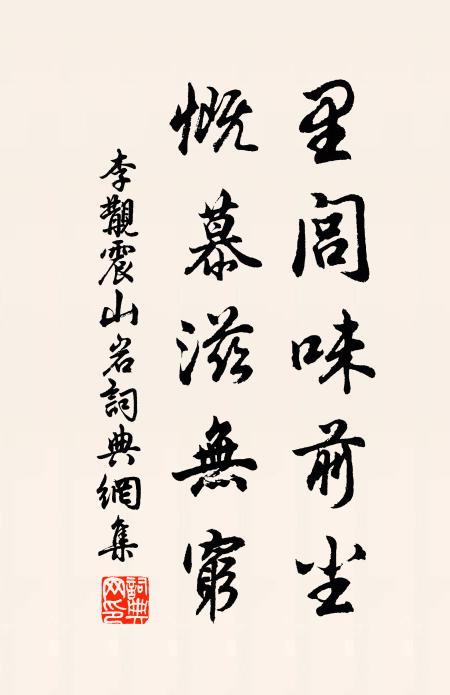 里閭味前坐
慨慕滋無窮
李觀震山岩詞典網集
詞典网印